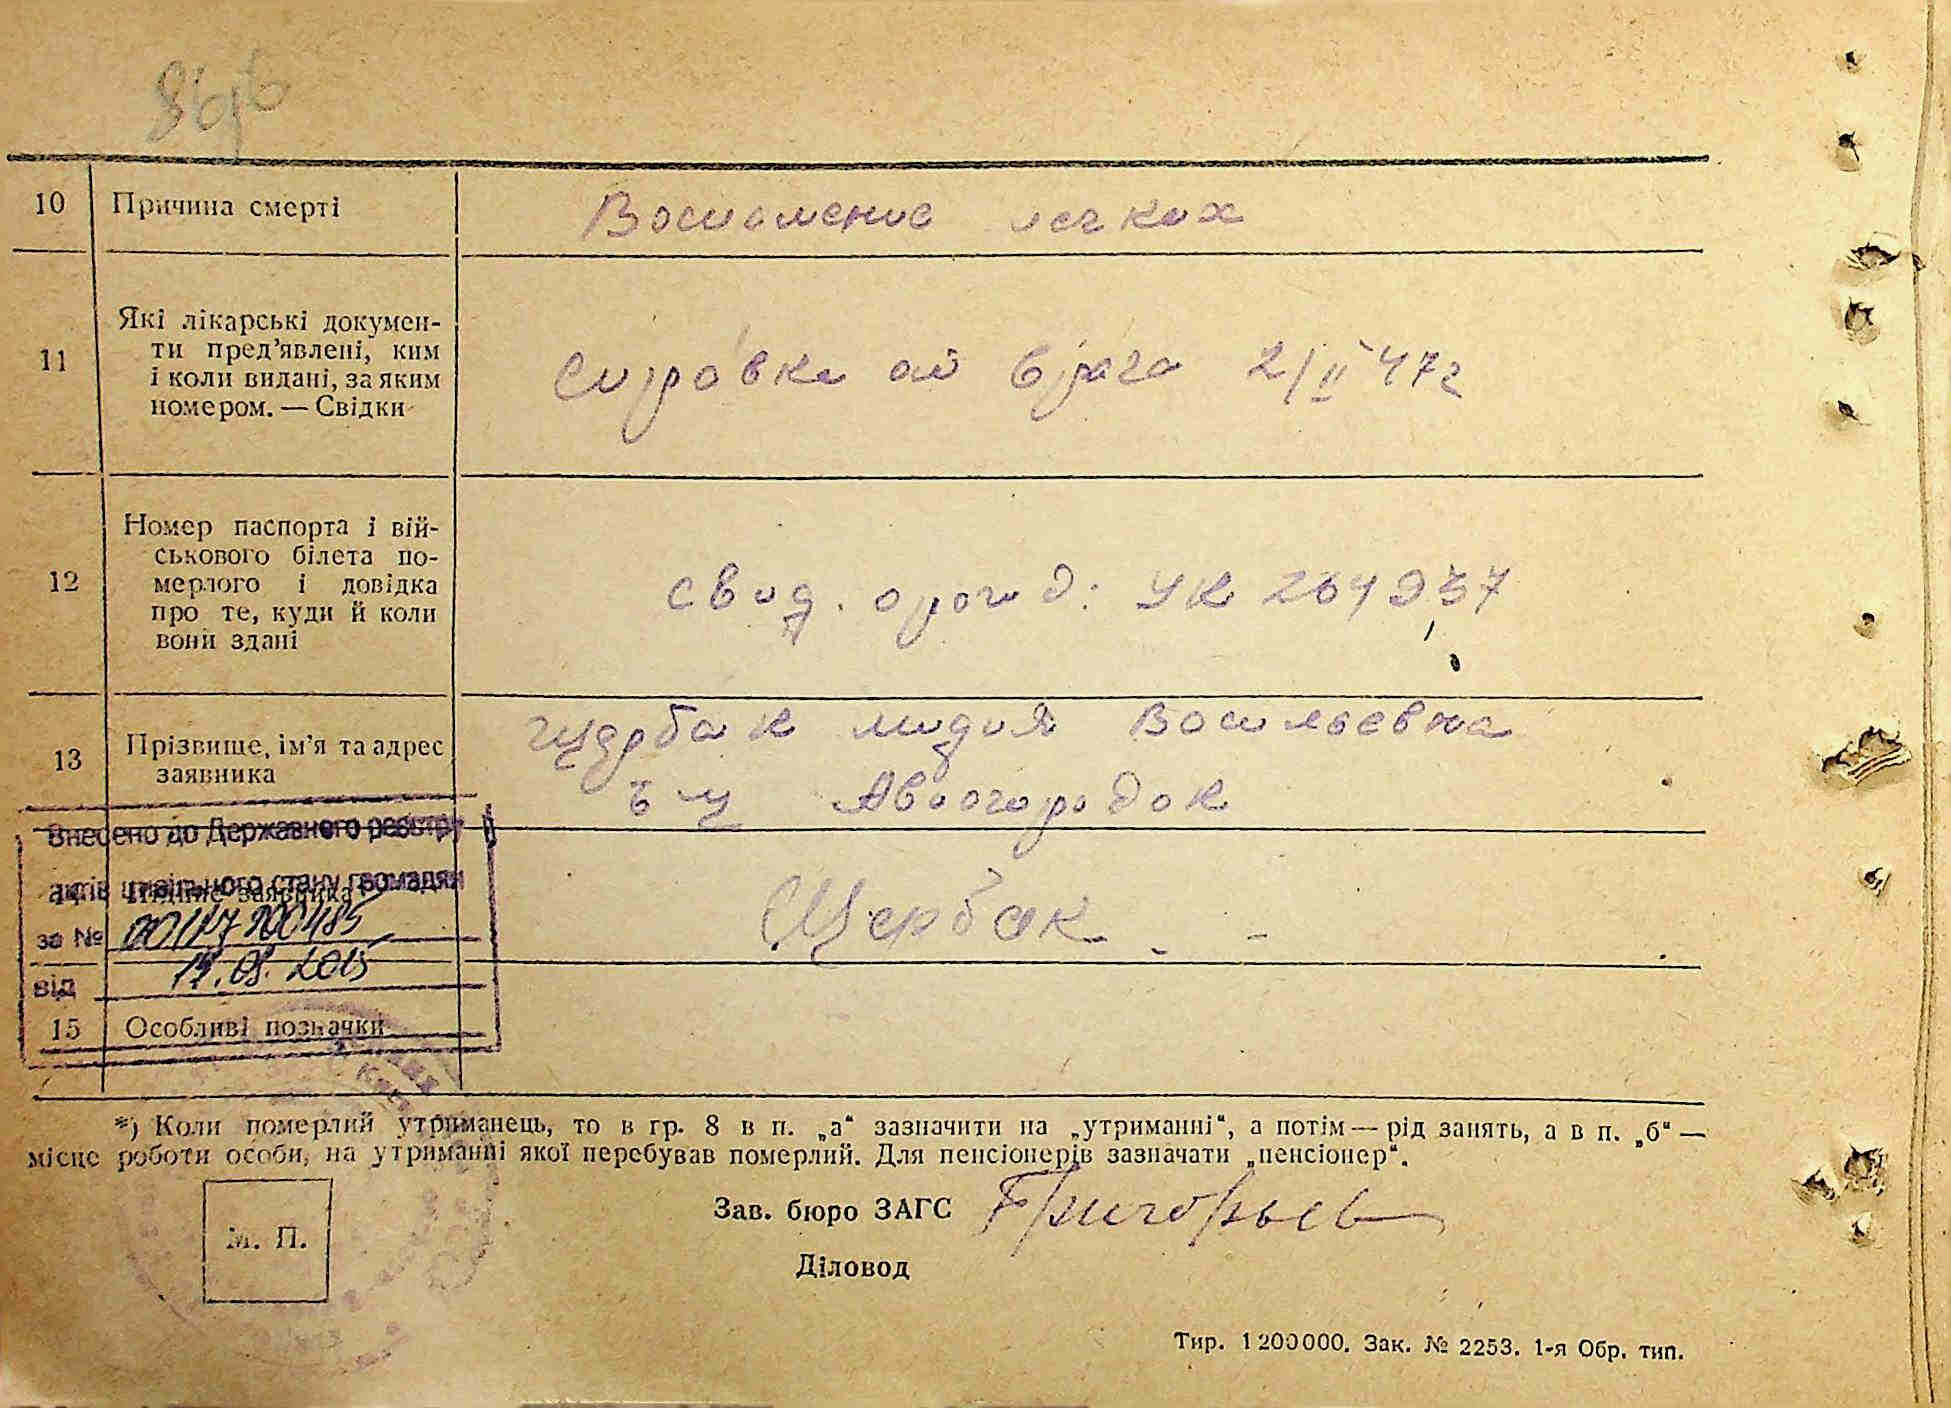 10 Причина смерті Воспаление легких
11 Які лікарські докумен-
ти пред’явлені, ким
і коли видані, за яким
номером. — Свідки
Справка от врача 2/II 47 г
12 Номер паспорта і вій-
ськового білета по-
мерлого і довідка
про те, куди й коли
вони здані
УК
13 Прізвище, ім’я та адрес
заявника
Щербак Лидия Васильевна
Автогородок
Внесено до Державного реєстру
актів цивільного стану громадян
Підпис заявника
Щербак
за №
від 2015
15 Особливі позначки
*) Коли померлий утриманець, то в гр. 8 в п. „а“ зазначити на „утриманні“, а потім — рід занять, а в п. „б“ —
місце роботи особи, на утриманні якої перебував померлий. Для пенсіонерів зазначати „пенсіонер“.
М. П.
Зав. бюро ЗАГС Григорьев
Діловод
Тир. 1200000. Зак. № 2253. 1-я Обр. тип.